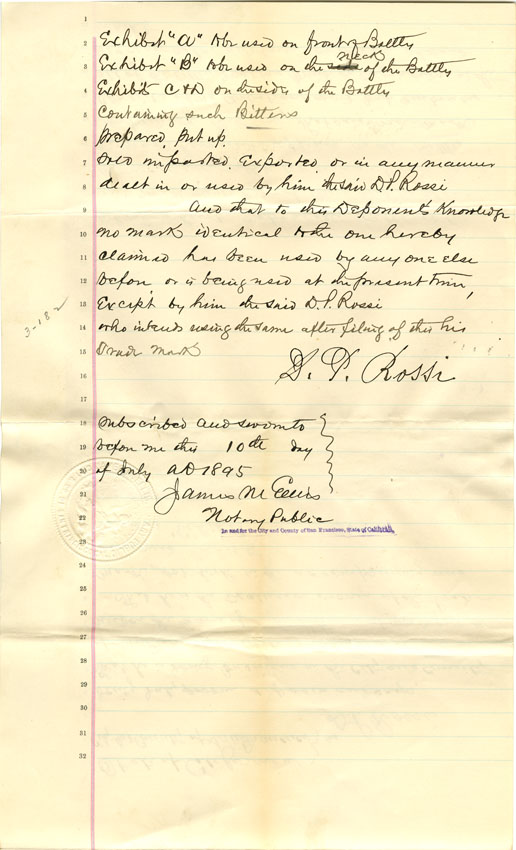 1
2 Exhibit "A" to be used on front of Bottle
neck
3 Exhibit "B" to be used on the side of the Bottle
4 Exhibits C & D on the sides of the Bottle
5 Containing such Bitters
6 prepared, put up,
7 sold imported, Exported or in any manner
8 dealt in or used by him the said D. P. Rossi
9 And that to this Deponents Knowledge
10 no mark identical to the one hereby
11 claimed has been used by any one else
12 before or is being used at the present time,
13 Except by him the said D. P. Rossi
3-182
14 who intends using the same after filing of this his
15 Trade Mark
16 D. P. Rossi
17
18 Subscribed and sworn to
19 before me this 10th day
20 of July AD 1895
21 James M Ellis
22 Notary Public
In and for the City and County of San Francisco, State of California.
23
24
25
26
27
28
29
30
31
32